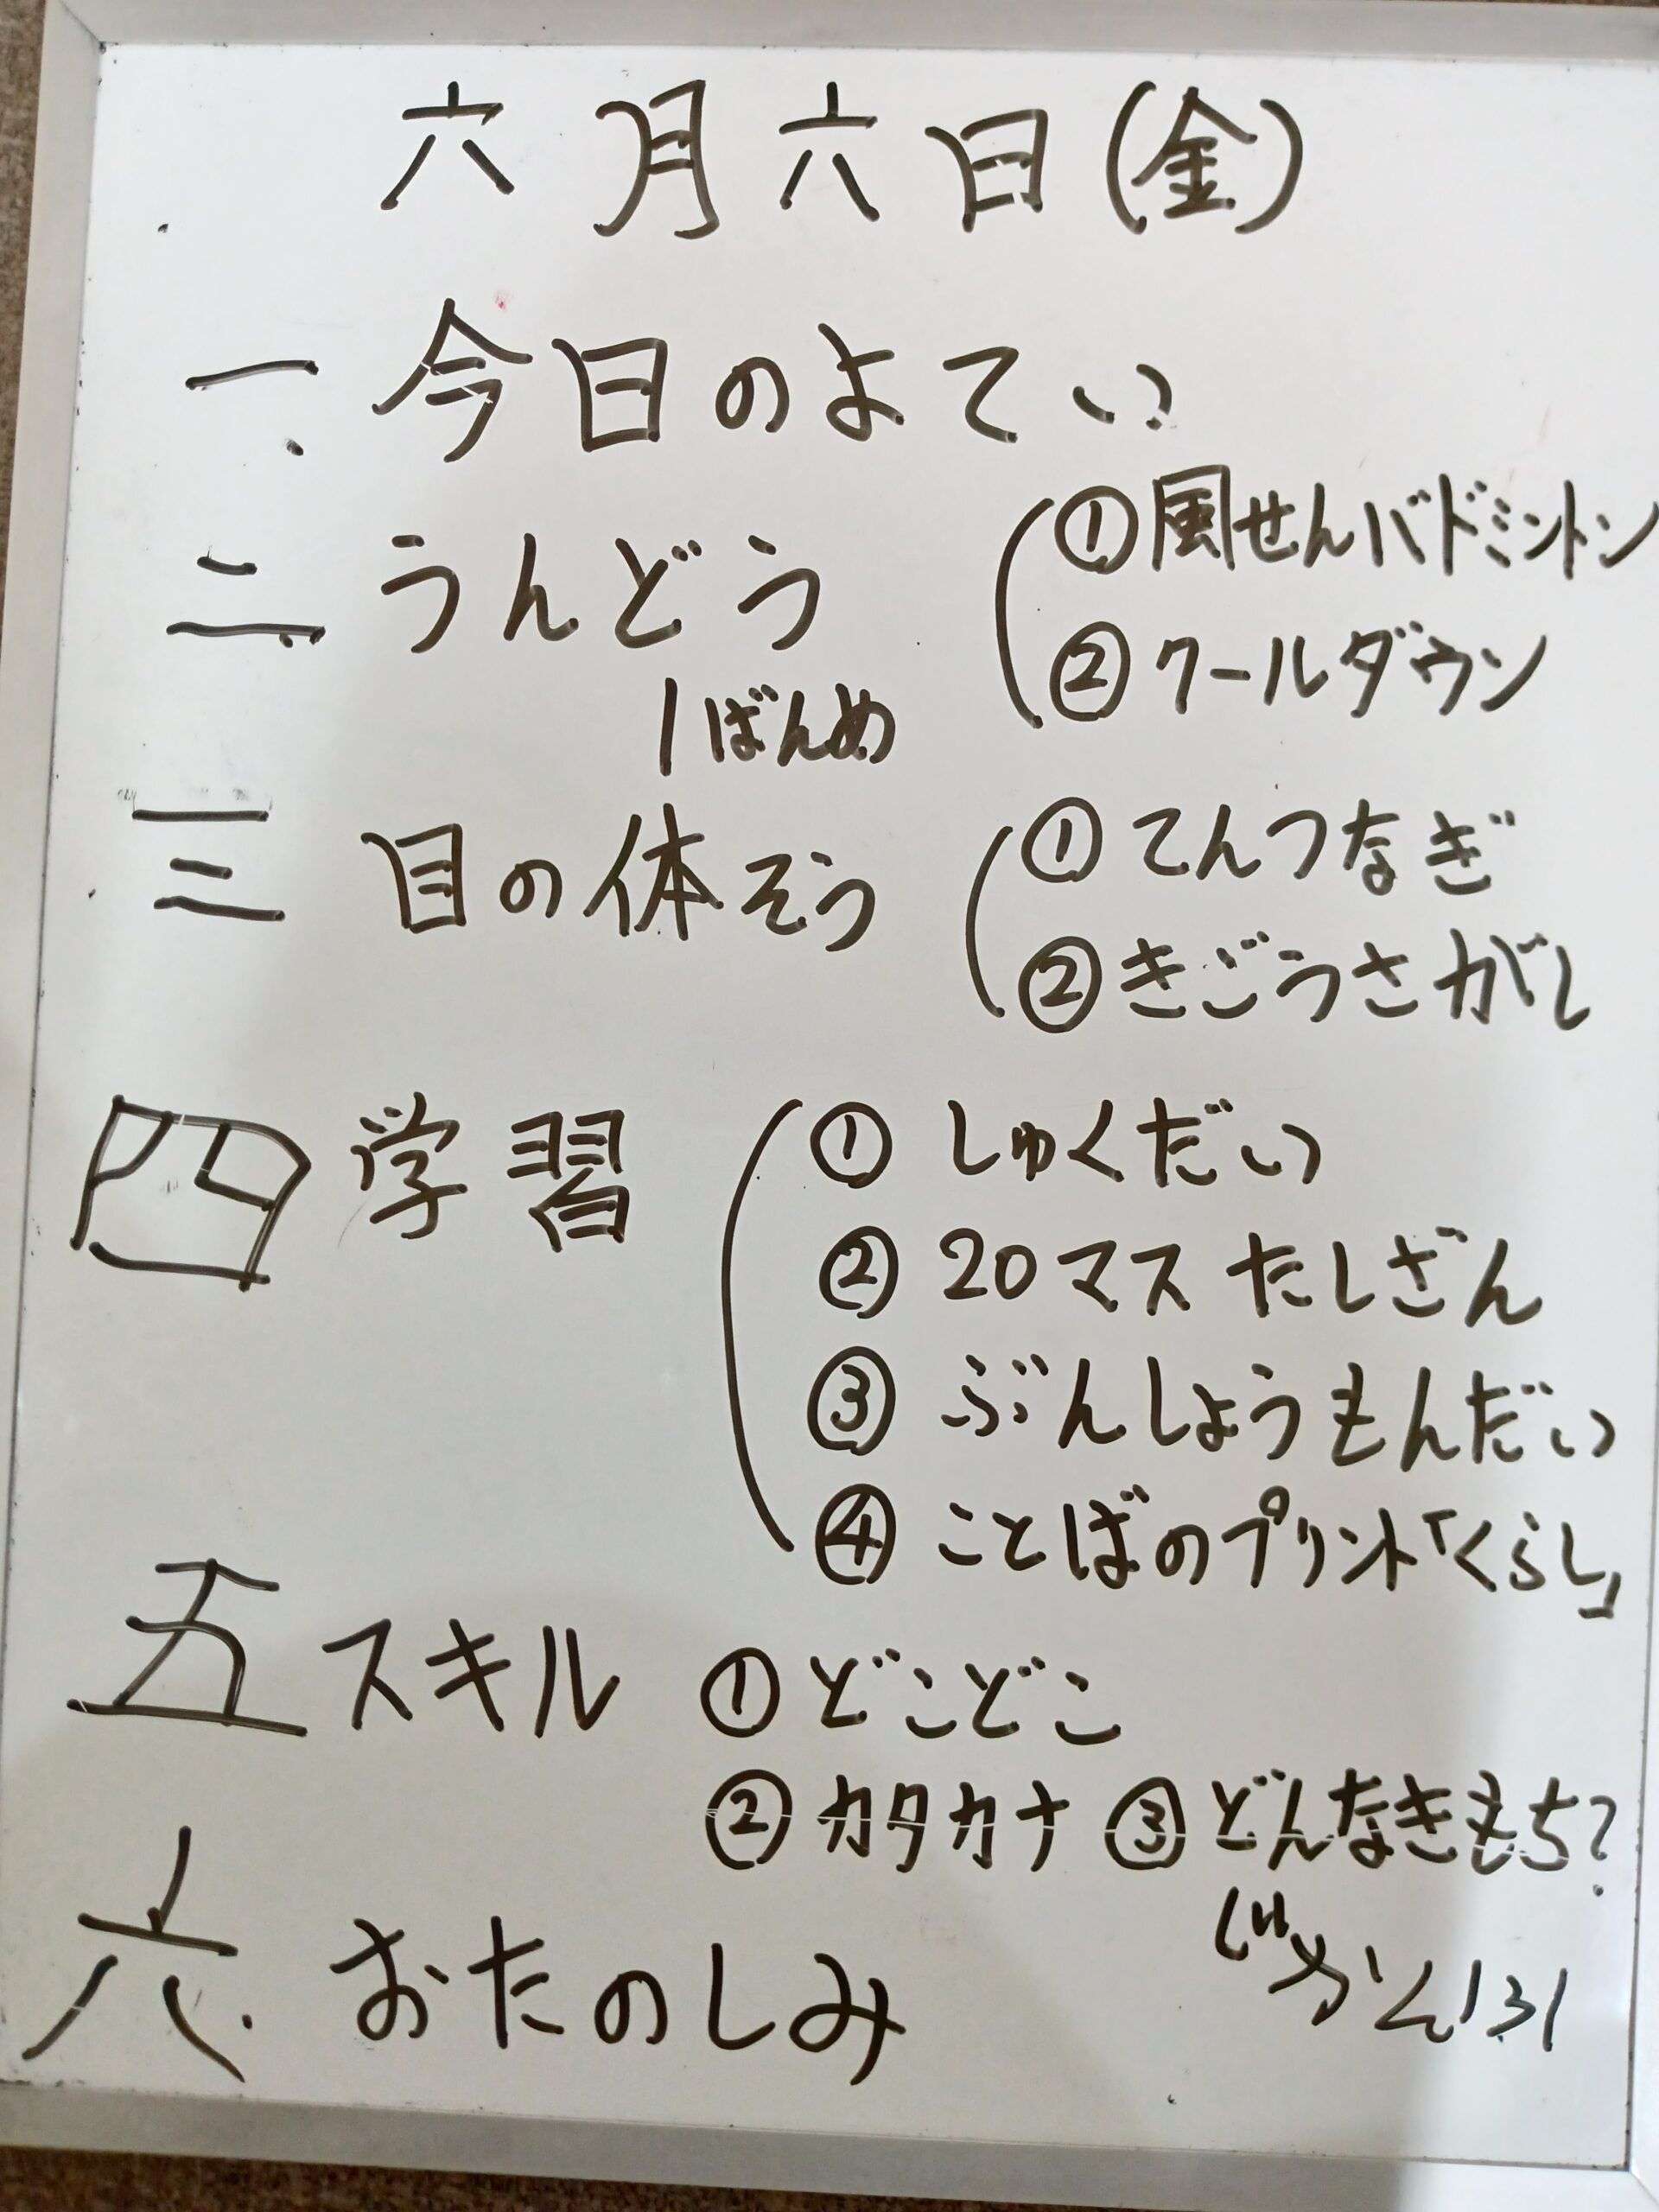 六月六日(金)
一、今日のよてい
二、うんどう
①風せんバドミントン
②クールダウン
1ばんめ
三 目の体そう
①てんつなぎ
②きごうさがし
四 学習
①しゅくだい
②20マスたしざん
③ぶんしょうもんだい
④ことばのプリント「くらし」
五 スキル ①どこどこ
②カタカナ ③どんなきもち?
六. おたのしみ
じかん